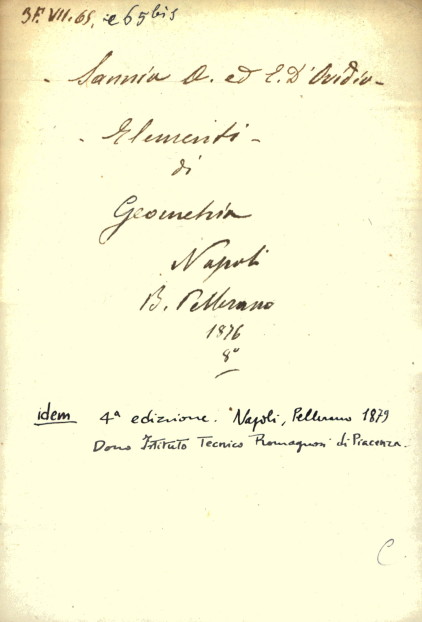 3F. VII. 65, e 65 bis
- Sannia A. ed E. D'Ovidio -
- Elementi -
di
Geometria
Napoli
B. Pellerano
1876
8°
idem 4ª edizione. Napoli, Pellerano 1879
Dono Istituto Tecnico Romagnosi di Piacenza.
C